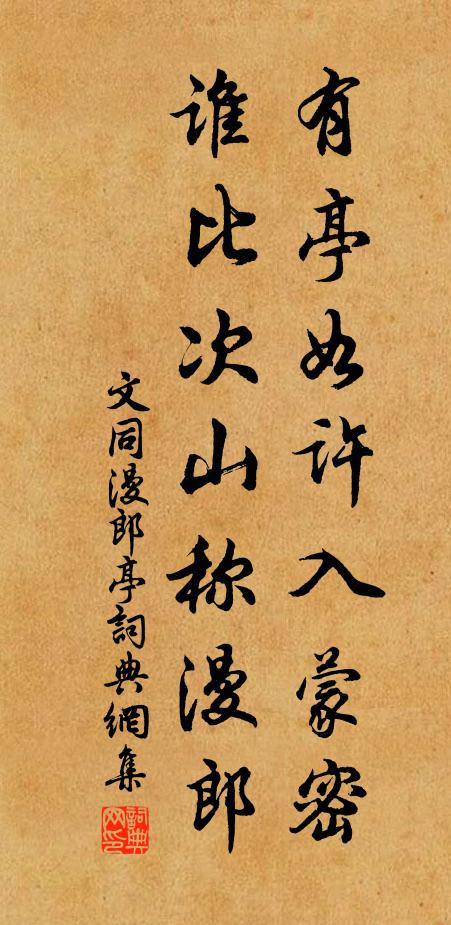 有亭如许入蒙密
谁比次山称漫郎
文同漫郎亭詞典網集
詞典网印